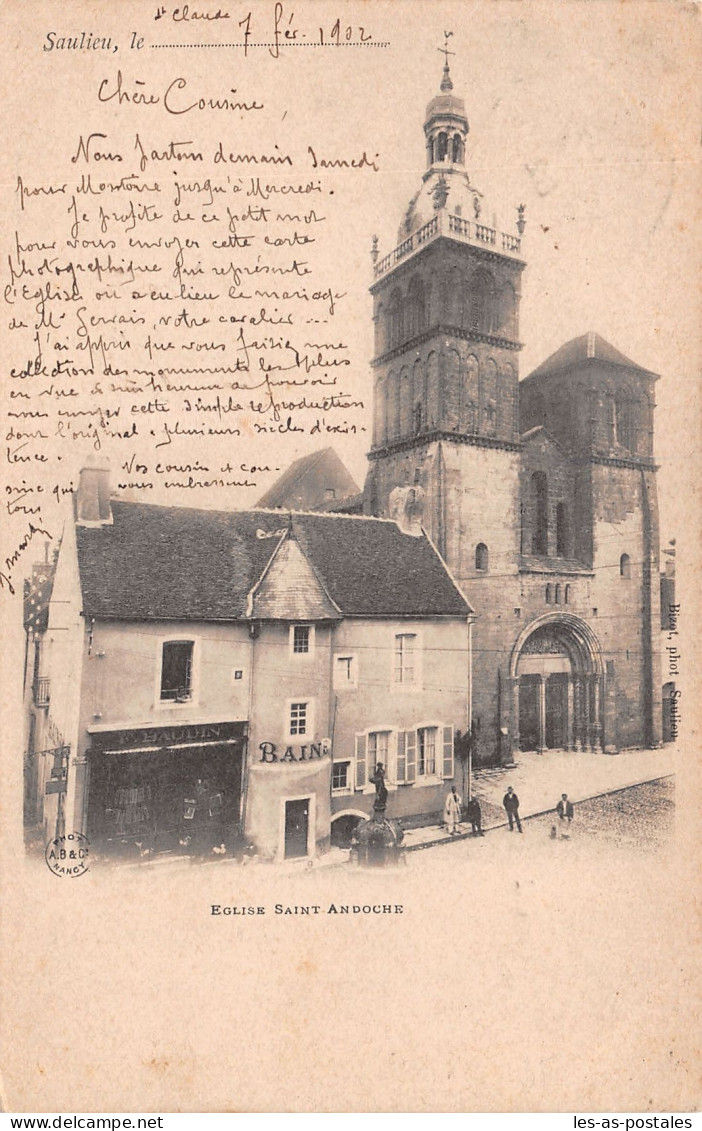 St Claude 7 fév. 1902
Saulieu, le
Chère Cousine,
Nous partons demain Samedi
pour jusqu'à Mercredi.
Je profite de ce petit mot
pour vous envoyer cette carte
photographique qui représente
l'Eglise où a eu lieu le mariage
de Mr Gervais, votre cavalier ...
J'ai appris que vous faisiez une
collection des monuments les plus
en vue & suis heureux de pouvoir
vous envoyer cette simple reproduction
dont l'original a plusieurs siècles d'exis-
tence.
Vos cousin et cou-
sine qui vous embrassent
tous
E. BAUDIN
BAINS
PHOT
A.B & Cie
NANCY
Bizot, phot Saulieu
EGLISE SAINT ANDOCHE
les-as-postales